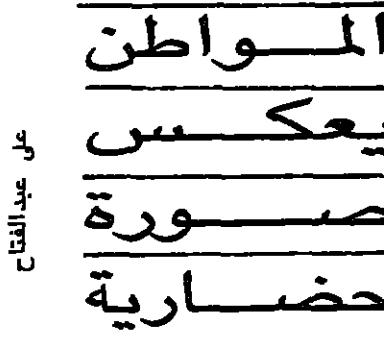 المواطن
يعكس
صورة
حضارية
على عبدالفتاح